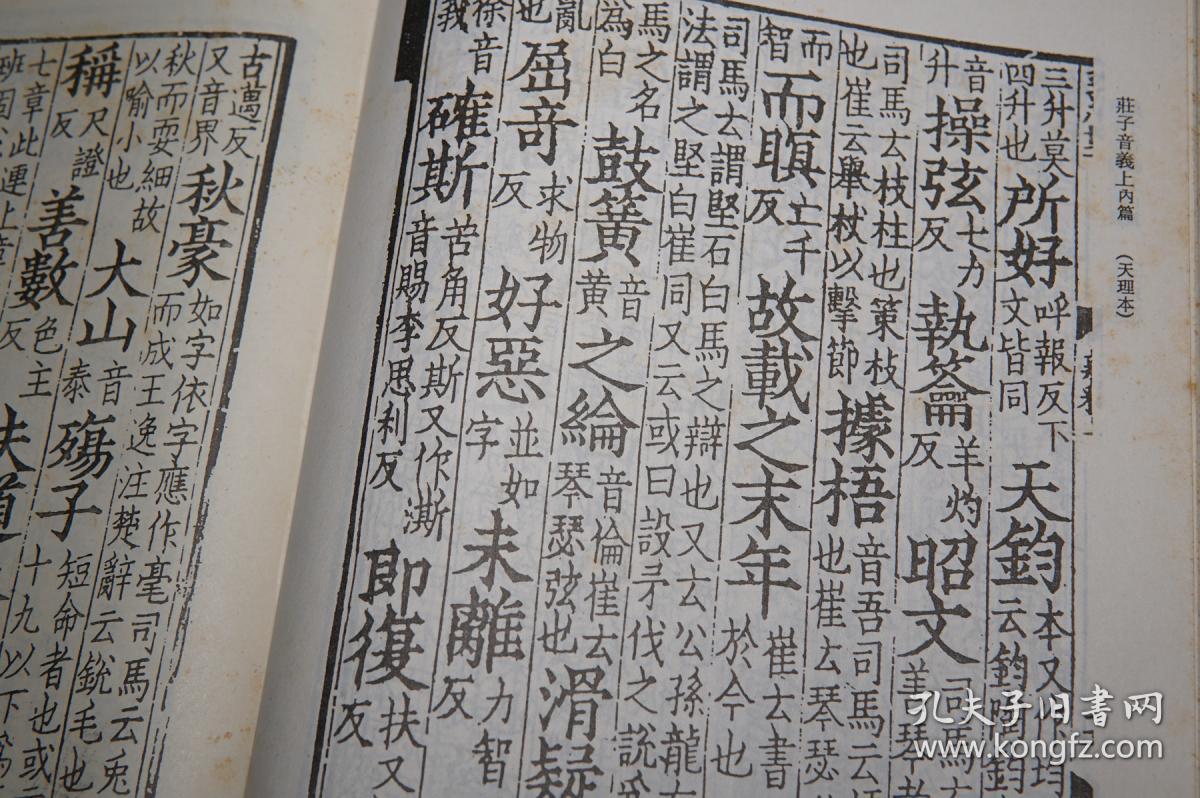 莊子音義上內篇 (天理本)
三升莫
四升也
所好
呼報反下
文皆同
天鈞
本又作均
云鈞陶鈞
音
升
操弦
七刀
反
執籥
羊灼
反
昭文
司馬云
善琴者
司馬云枝柱也策杖
也崔云舉杖以擊節
據梧
音吾司馬云
也崔云琴瑟
而
智
而瞑
亡千
反
故載之末年
崔云書
於今也
司馬云謂堅石白馬之辯也又云公孫龍
法謂之堅白崔同又云或曰設矛伐之說爲
馬之名
爲白
鼓簧
音
黃
之綸
音倫崔云
琴瑟弦也
滑疑
亂
也
屈奇
求物
反
好惡
並如
字
未離
力智
反
徐音
我
確斯
苦角反斯又作澌
音賜李思利反
即復
扶又
反
古邁反
又音界
秋豪
如字依字應作毫司馬云兔
而成王逸注楚辭云銳毛也
秋而耎細故
以喻小也
大山
音
泰
殤子
短命者也或
十九以下爲
稱
尺證
反
善數
色主
反
扶道
七章此連上章
班固
孔夫子旧书网
www.kongfz.com